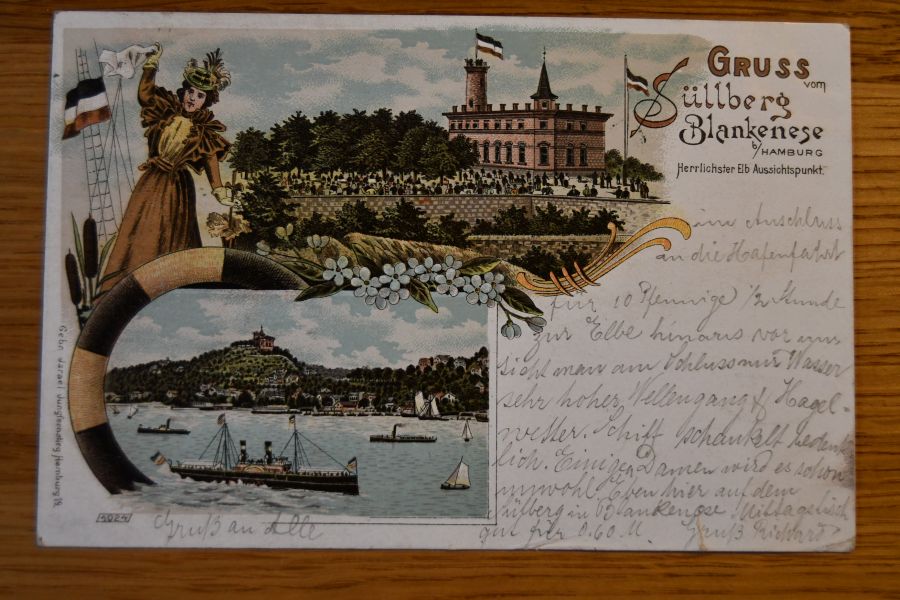 GRUSS
vom
Süllberg
Blankenese
b/HAMBURG
Herrlichster Elb Aussichtspunkt.
im Anschluss
an die Hafenfahrt
für 10 Pfennige 1/2 Stunde
zur Elbe hinaus vor
sieht man am Schluss nur Wasser
sehr hoher Wellengang & Hagel-
wetter. Schiff schaukelt bedenk
lich. Einigen Damen wird es schon
unwohl. Eben hier auf dem
Süllberg in Blankenese Mittagstisch
gut für 0.60 M. Gruß Richard
Gruß an Alle
5024
Gebr. Israel Jungfernstieg, Hamburg 19.